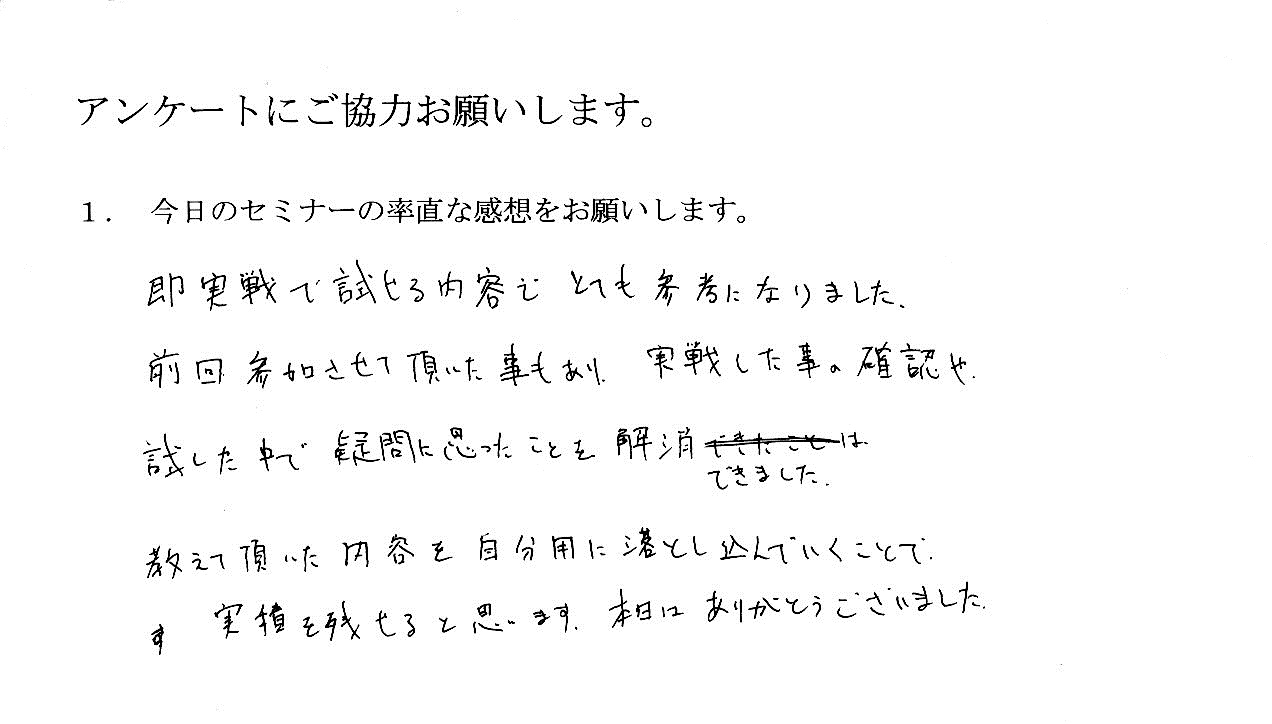 アンケートにご協力お願いします。
１． 今日のセミナーの率直な感想をお願いします。
即実戦で試せる内容で とても参考になりました、
前回参加させて頂いた事もあり、実戦した事の確認や、
試した中で疑問に思ったことを解消できたことは
できました。
教えて頂いた内容を自分用に落とし込んでいくことで、
す 実積を残せると思います。本日はありがとうございました。